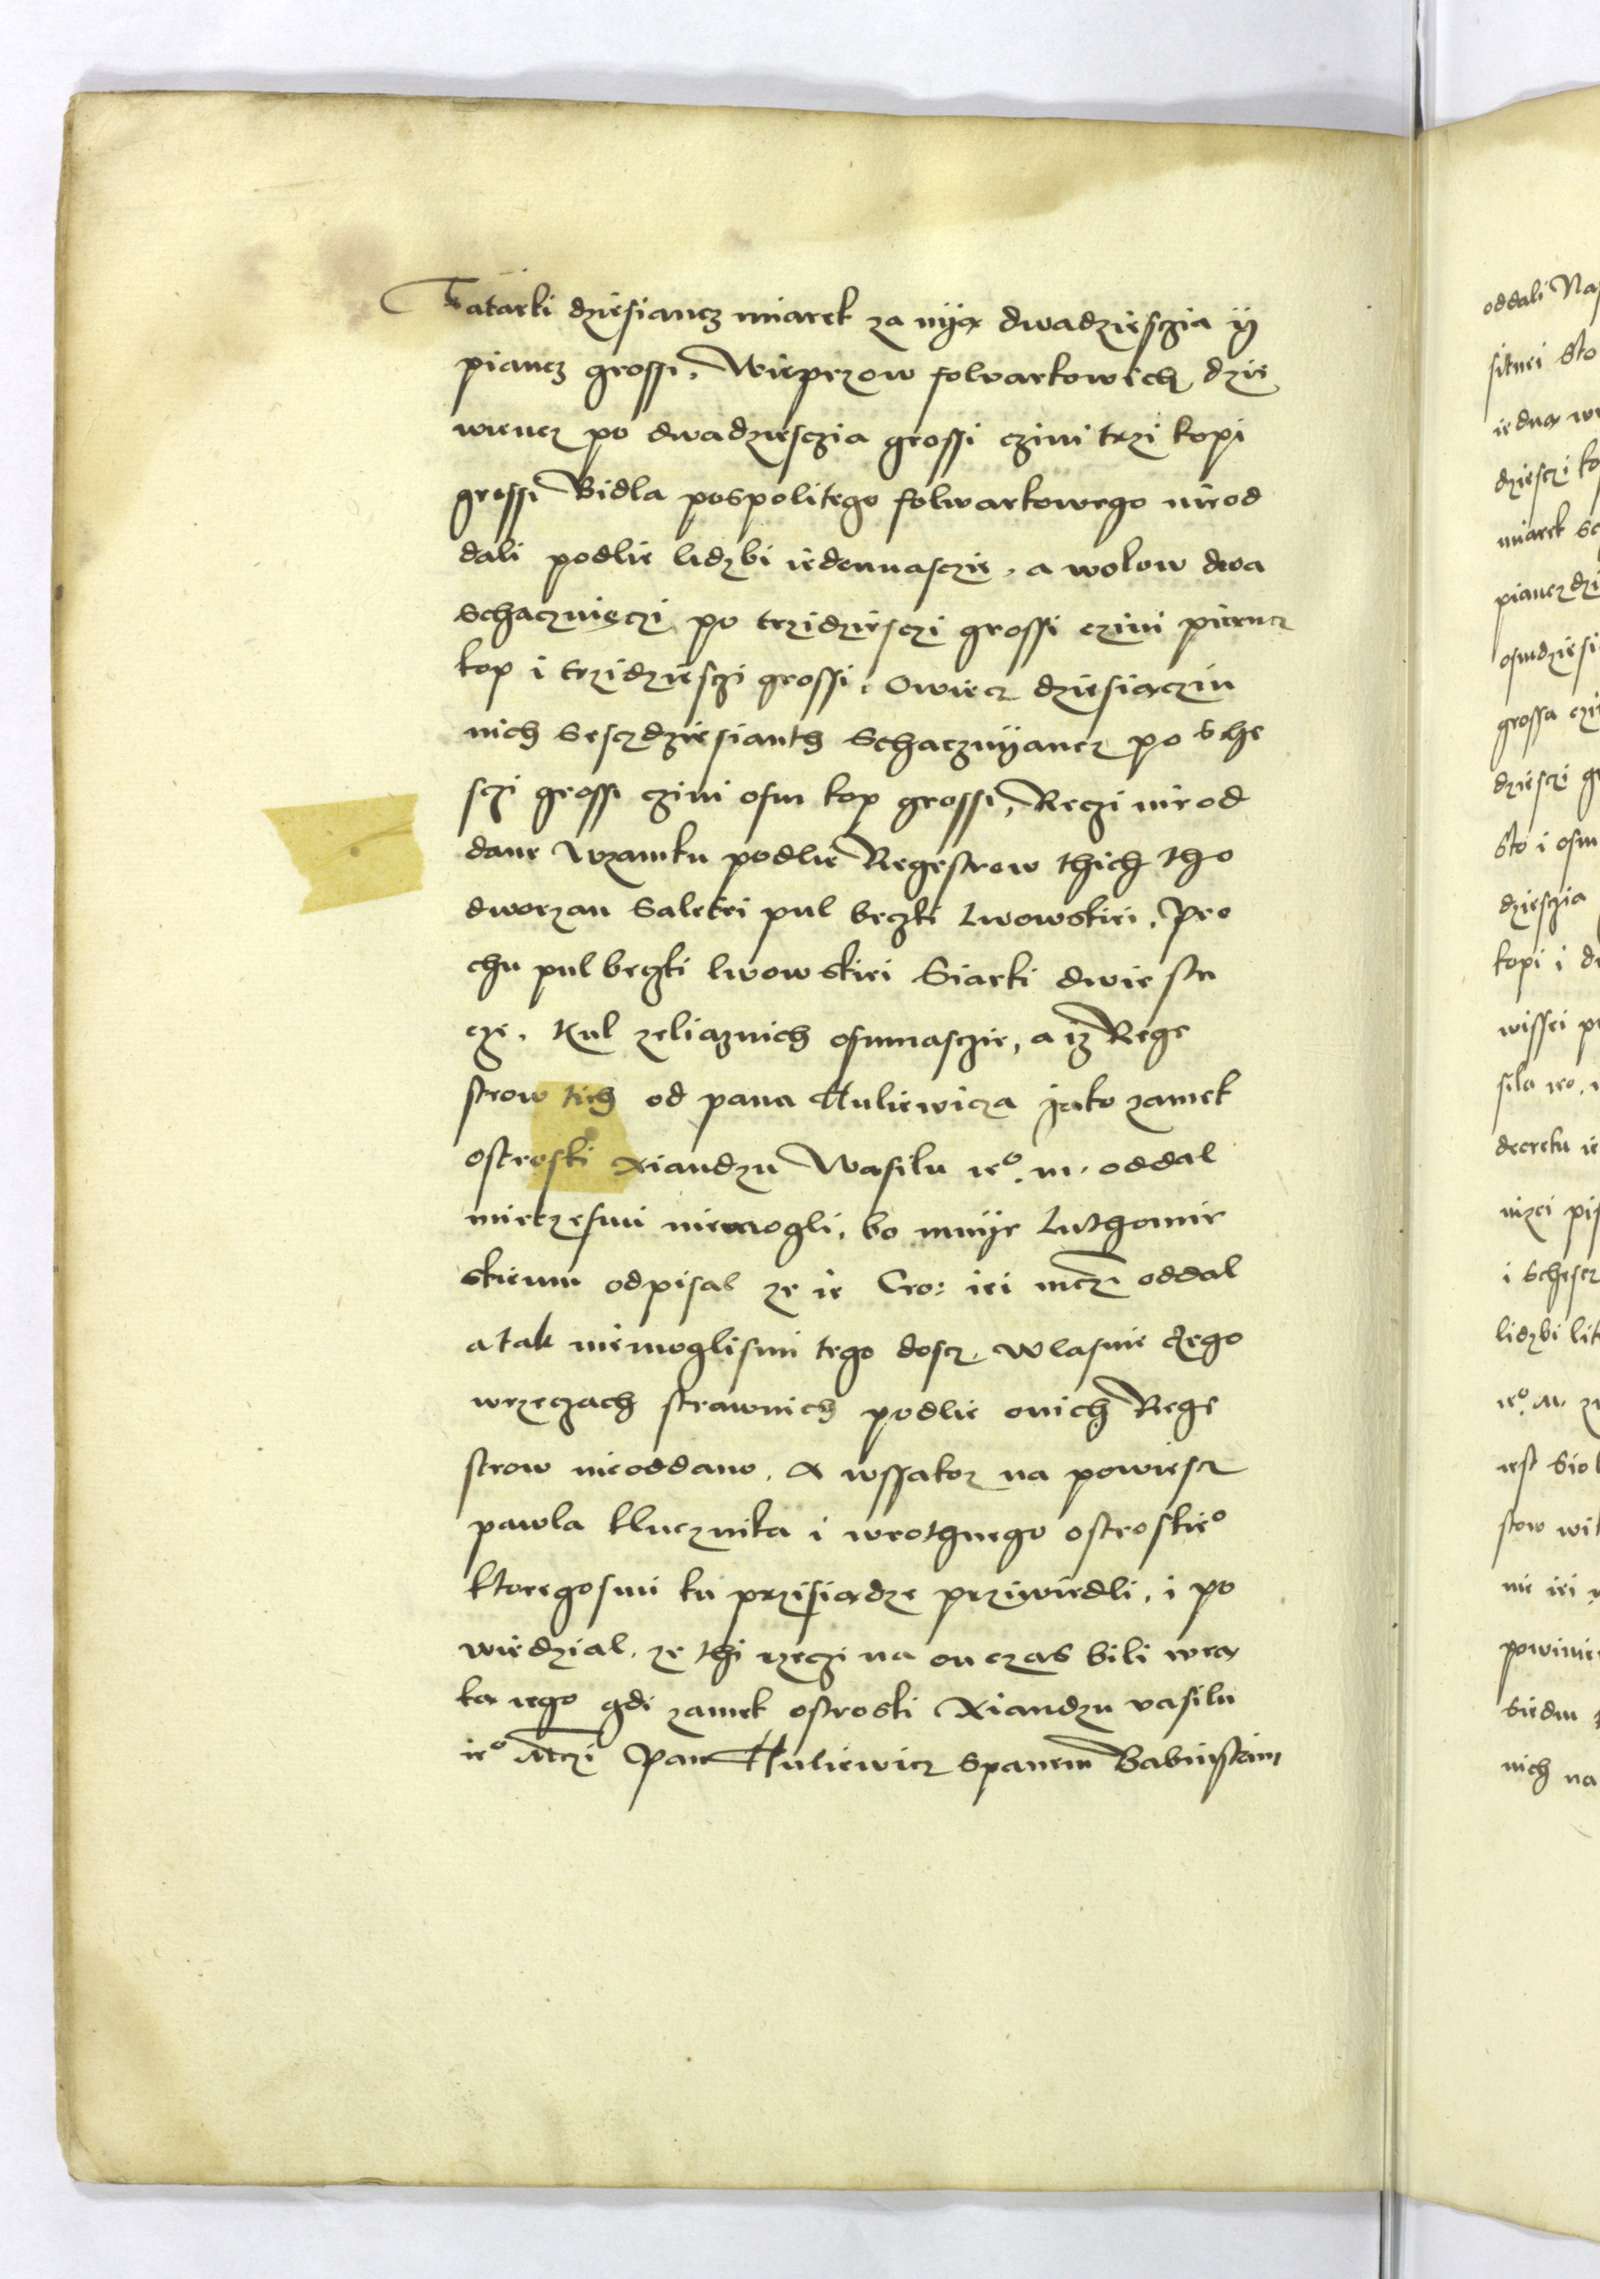 Tatarki dziesiancz miarek za nyą dwadziesczia y
piancz grossi, Wieprzow folvarkowich dzie
wiencz po dwadziesczia grossi czini trzi kopi
grossi Bidla pospolitego folwarkowego nieod
dali podlie lidzbi iedennasczie, a wolow dwa
schacznięczi po trzidziesczi grossi czini piencz
kop i trzidziesczi grossi, Owiecz dziesiączin
nich sesczdziesianth schacznyancz po sche
sczi grossi czini osm kop grossi, Rzeczi nieod
dane wzamku podlie Regestrow thich tho
dworzan Saletri pul beczki Lwowskiei, Pro
chu pul beczki lwowskiei Siarki dwie stu
cze. Kul zeliaznich osmnasczie, a iz Rege
strow tich od pana Huliewicza jako zamek
ostroski Xiandzu Wasilu ie° m. oddal
miecz esmi niemogli, bo mnye Luthomir
skiemu odpisal ze ie Cro: iei mczi oddal
a tak niemoglismi tego doscz. Wlasnie czego
wrzeczach strawnich podlie onich Rege
strow nieoddano, A wssakoz na powiescz
pawla klucznika i wrothnego ostroskie°
ktoregosmi ku przisiądze prziwiedli, i po
wiedzial, ze thi rzeczi na on czas bili wrą
ku iego gdi zamek ostroski Xiandzu vasilu
ie° Mczi Pan Huliewicz spanem Babinskim
oddali
sitnei Sto
iedną
dziesczi
miarek
piancz
grossa
dziesczi
sto i osm
dziesczia
kopi i
wissei
decretu
nizei
i schescz
lidzbi
ie° M.
iest
stow
nie iei
Siedm
nich na